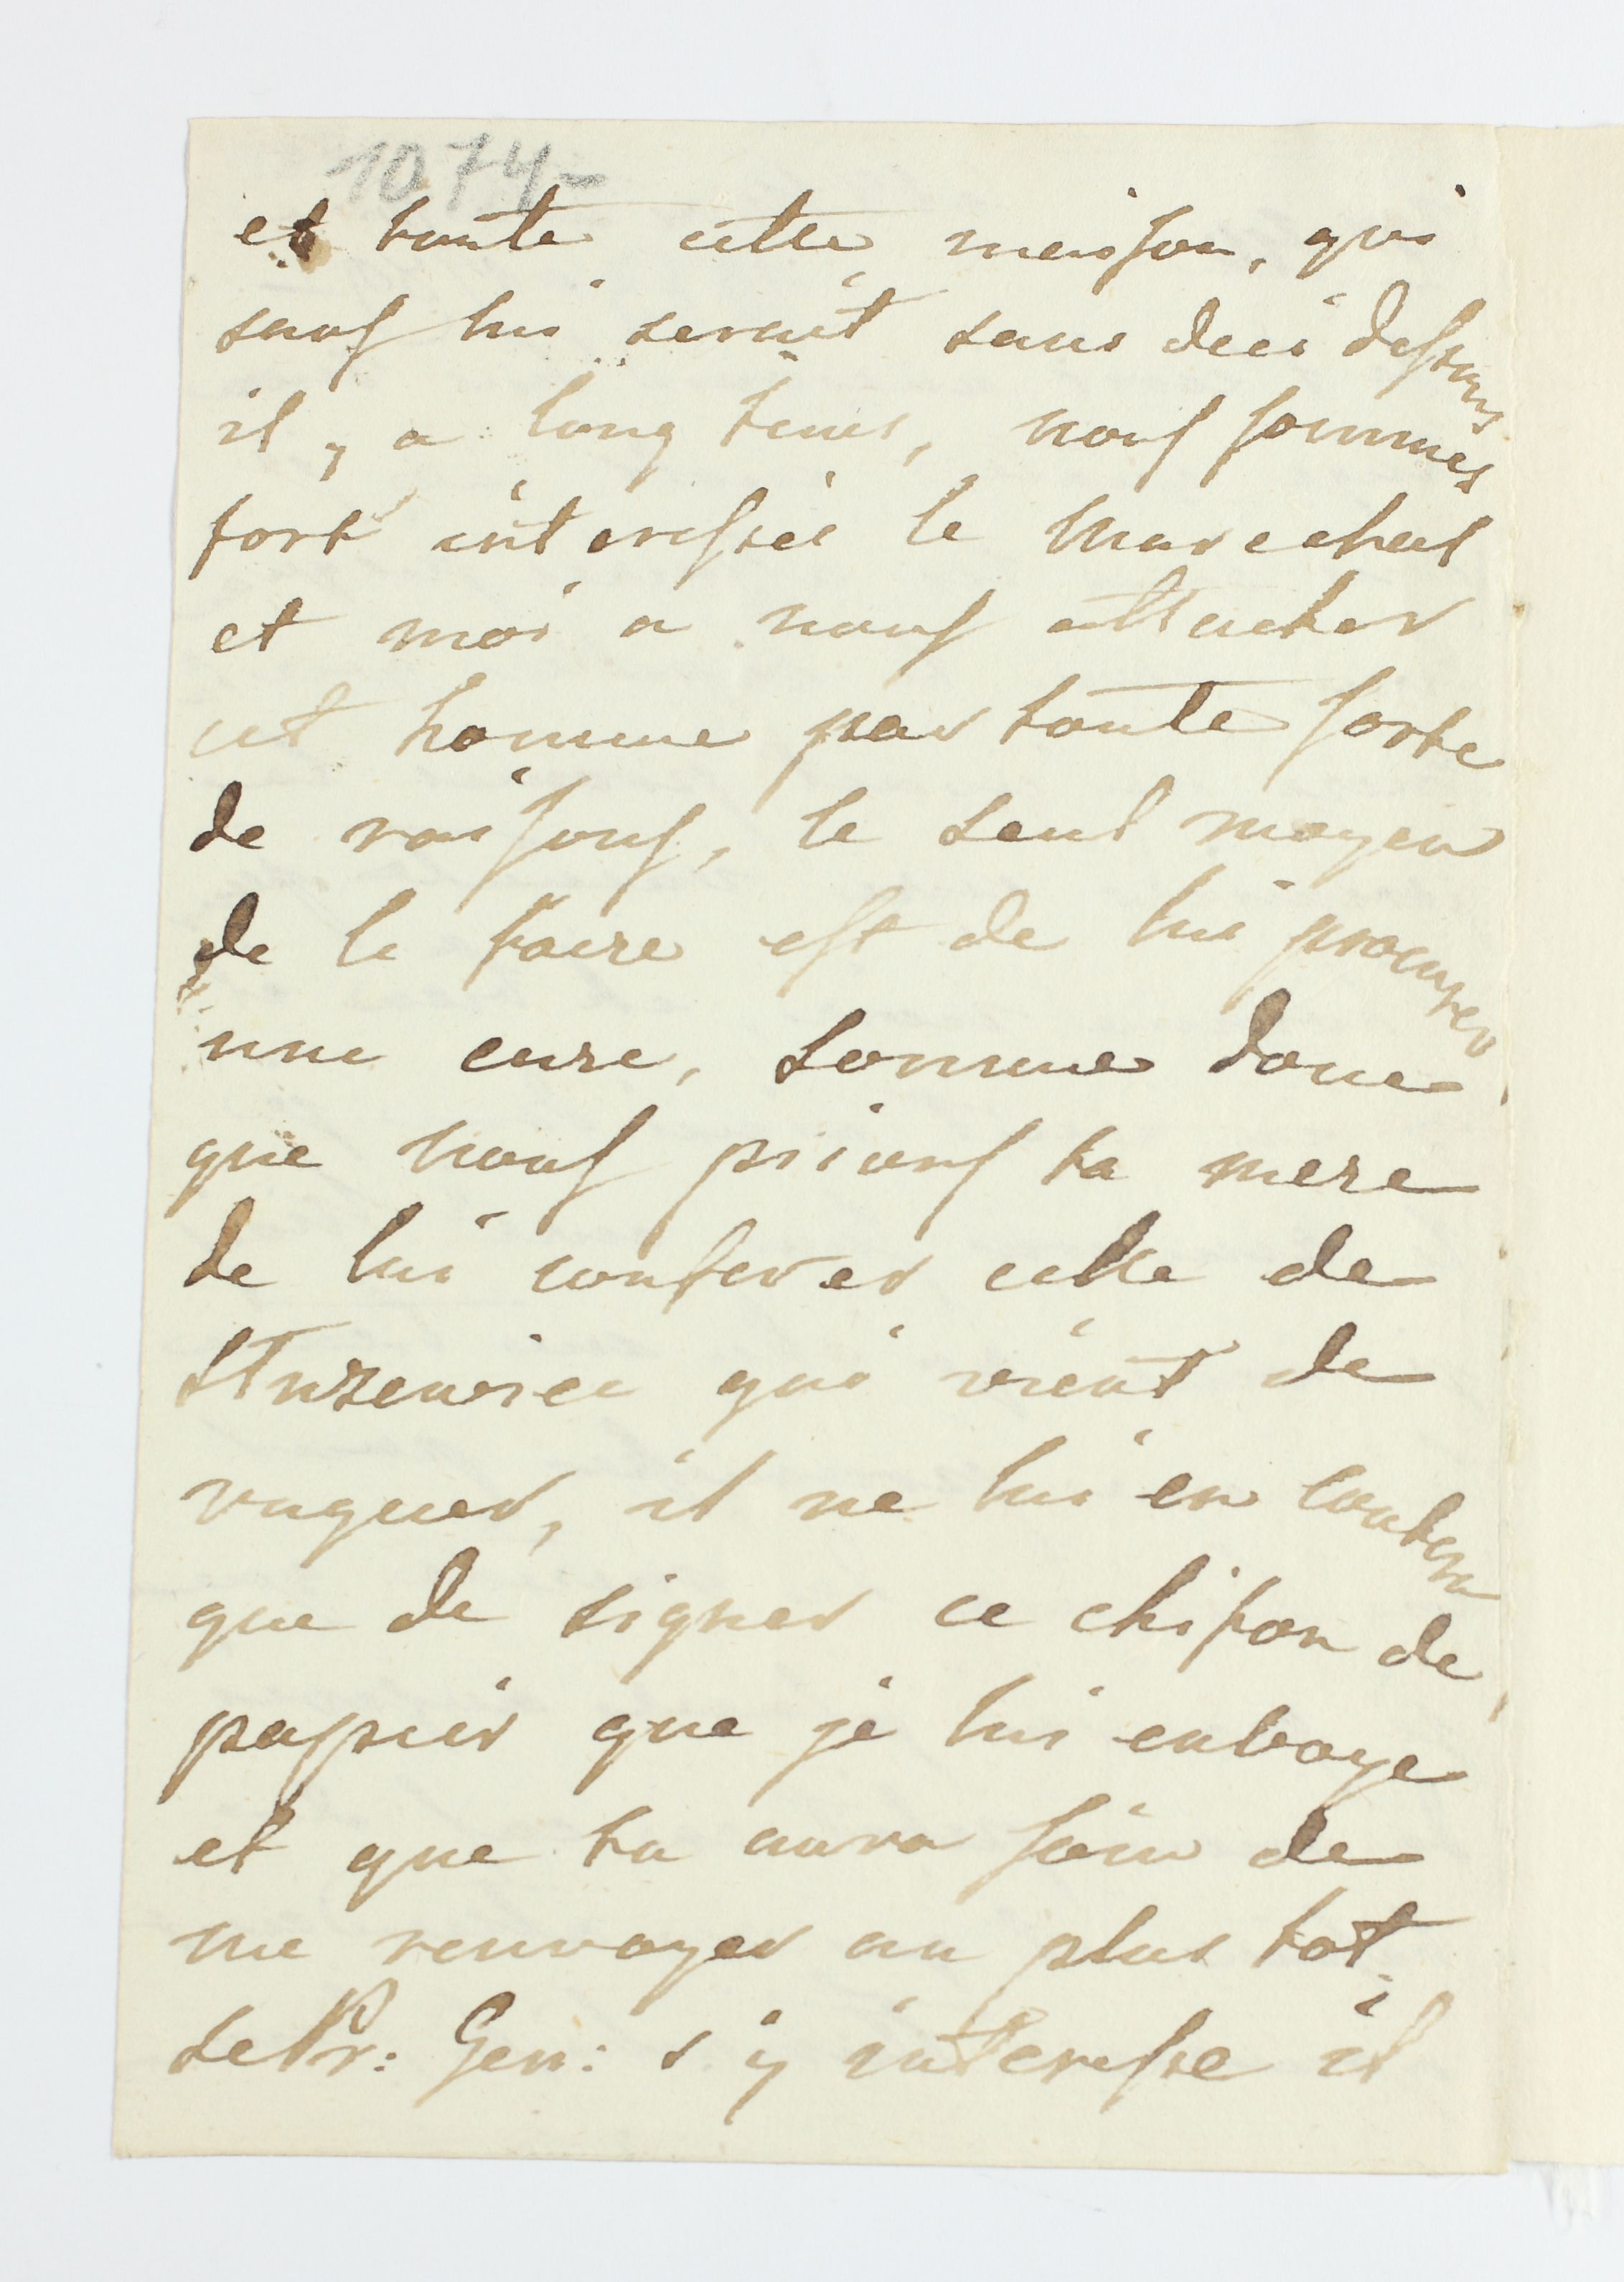 1074-
et toute cette maison, qui
sauf lui serait sans dessus
il y a long tems, nous sommes
fort interessés le Marechal
et moi a nous attacher
cet homme par toute sorte
de raisons, le seul moyen
de le faire est de lui procurer
une cure, somme donc
que nous priions ta mere
de lui conferer celle de
qui vient de
vaquer, il ne lui en coutera
que de signer ce chifon de
papier que je lui envoye
et que tu aura soin de
me renvoyer au plus tot,
le Pr: Gen: s'y interesse il